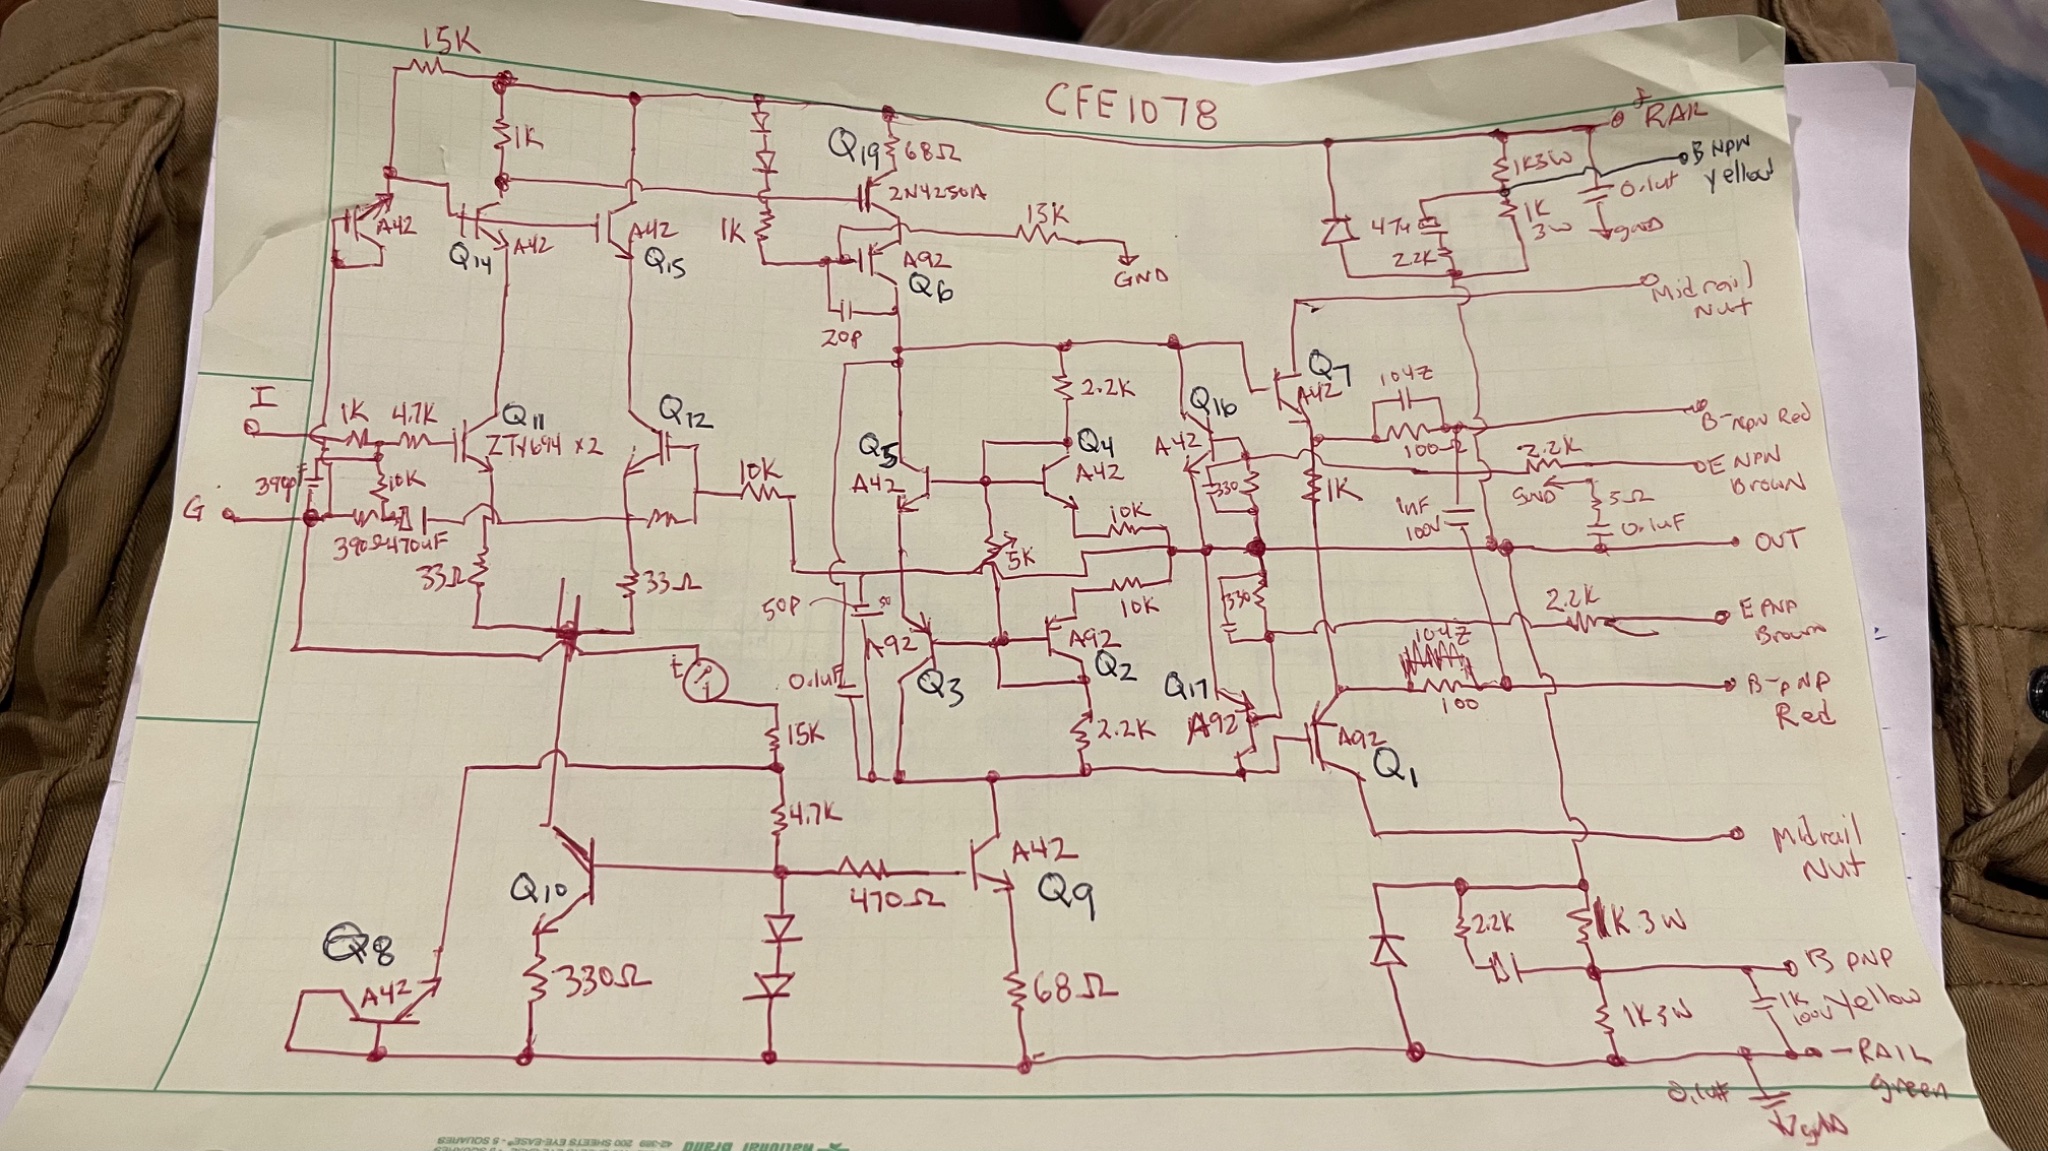 CFE1078
15K
+ RAIL
1K
Q19
68Ω
2N4250A
1K3W
B NPN
Yellow
0.1uf
gnd
A42
Q14
A42
A42
Q15
1K
13K
GND
A92
Q6
20P
47u
2.2K
1K
3W
Midrail
Nut
I
1K
4.7K
Q11
ZTX694 x2
Q12
390p
10K
G
390Ω
470uF
33Ω
33Ω
10K
2.2K
Q5
A42
Q4
A42
10K
5K
Q16
A42
330
Q7
A42
104Z
100Ω
1K
B-NPN Red
2.2K
E NPN
Brown
GND
5Ω
0.1uF
1nF
100V
OUT
50P
50
10K
A92
Q3
A92
Q2
330
2.2K
E PNP
Brown
104Z
100
B-PNP
Red
t
15K
0.1uF
2.2K
Q17
A92
A92
Q1
4.7K
470Ω
A42
Q9
Midrail
Nut
Q10
Q8
A42
330Ω
68Ω
2.2K
1K 3W
B PNP
Yellow
1K
100V
1K3W
-RAIL
green
0.1uf
gnd
42-389 200 SHEETS EYE-EASE® 5 SQUARES
National Brand